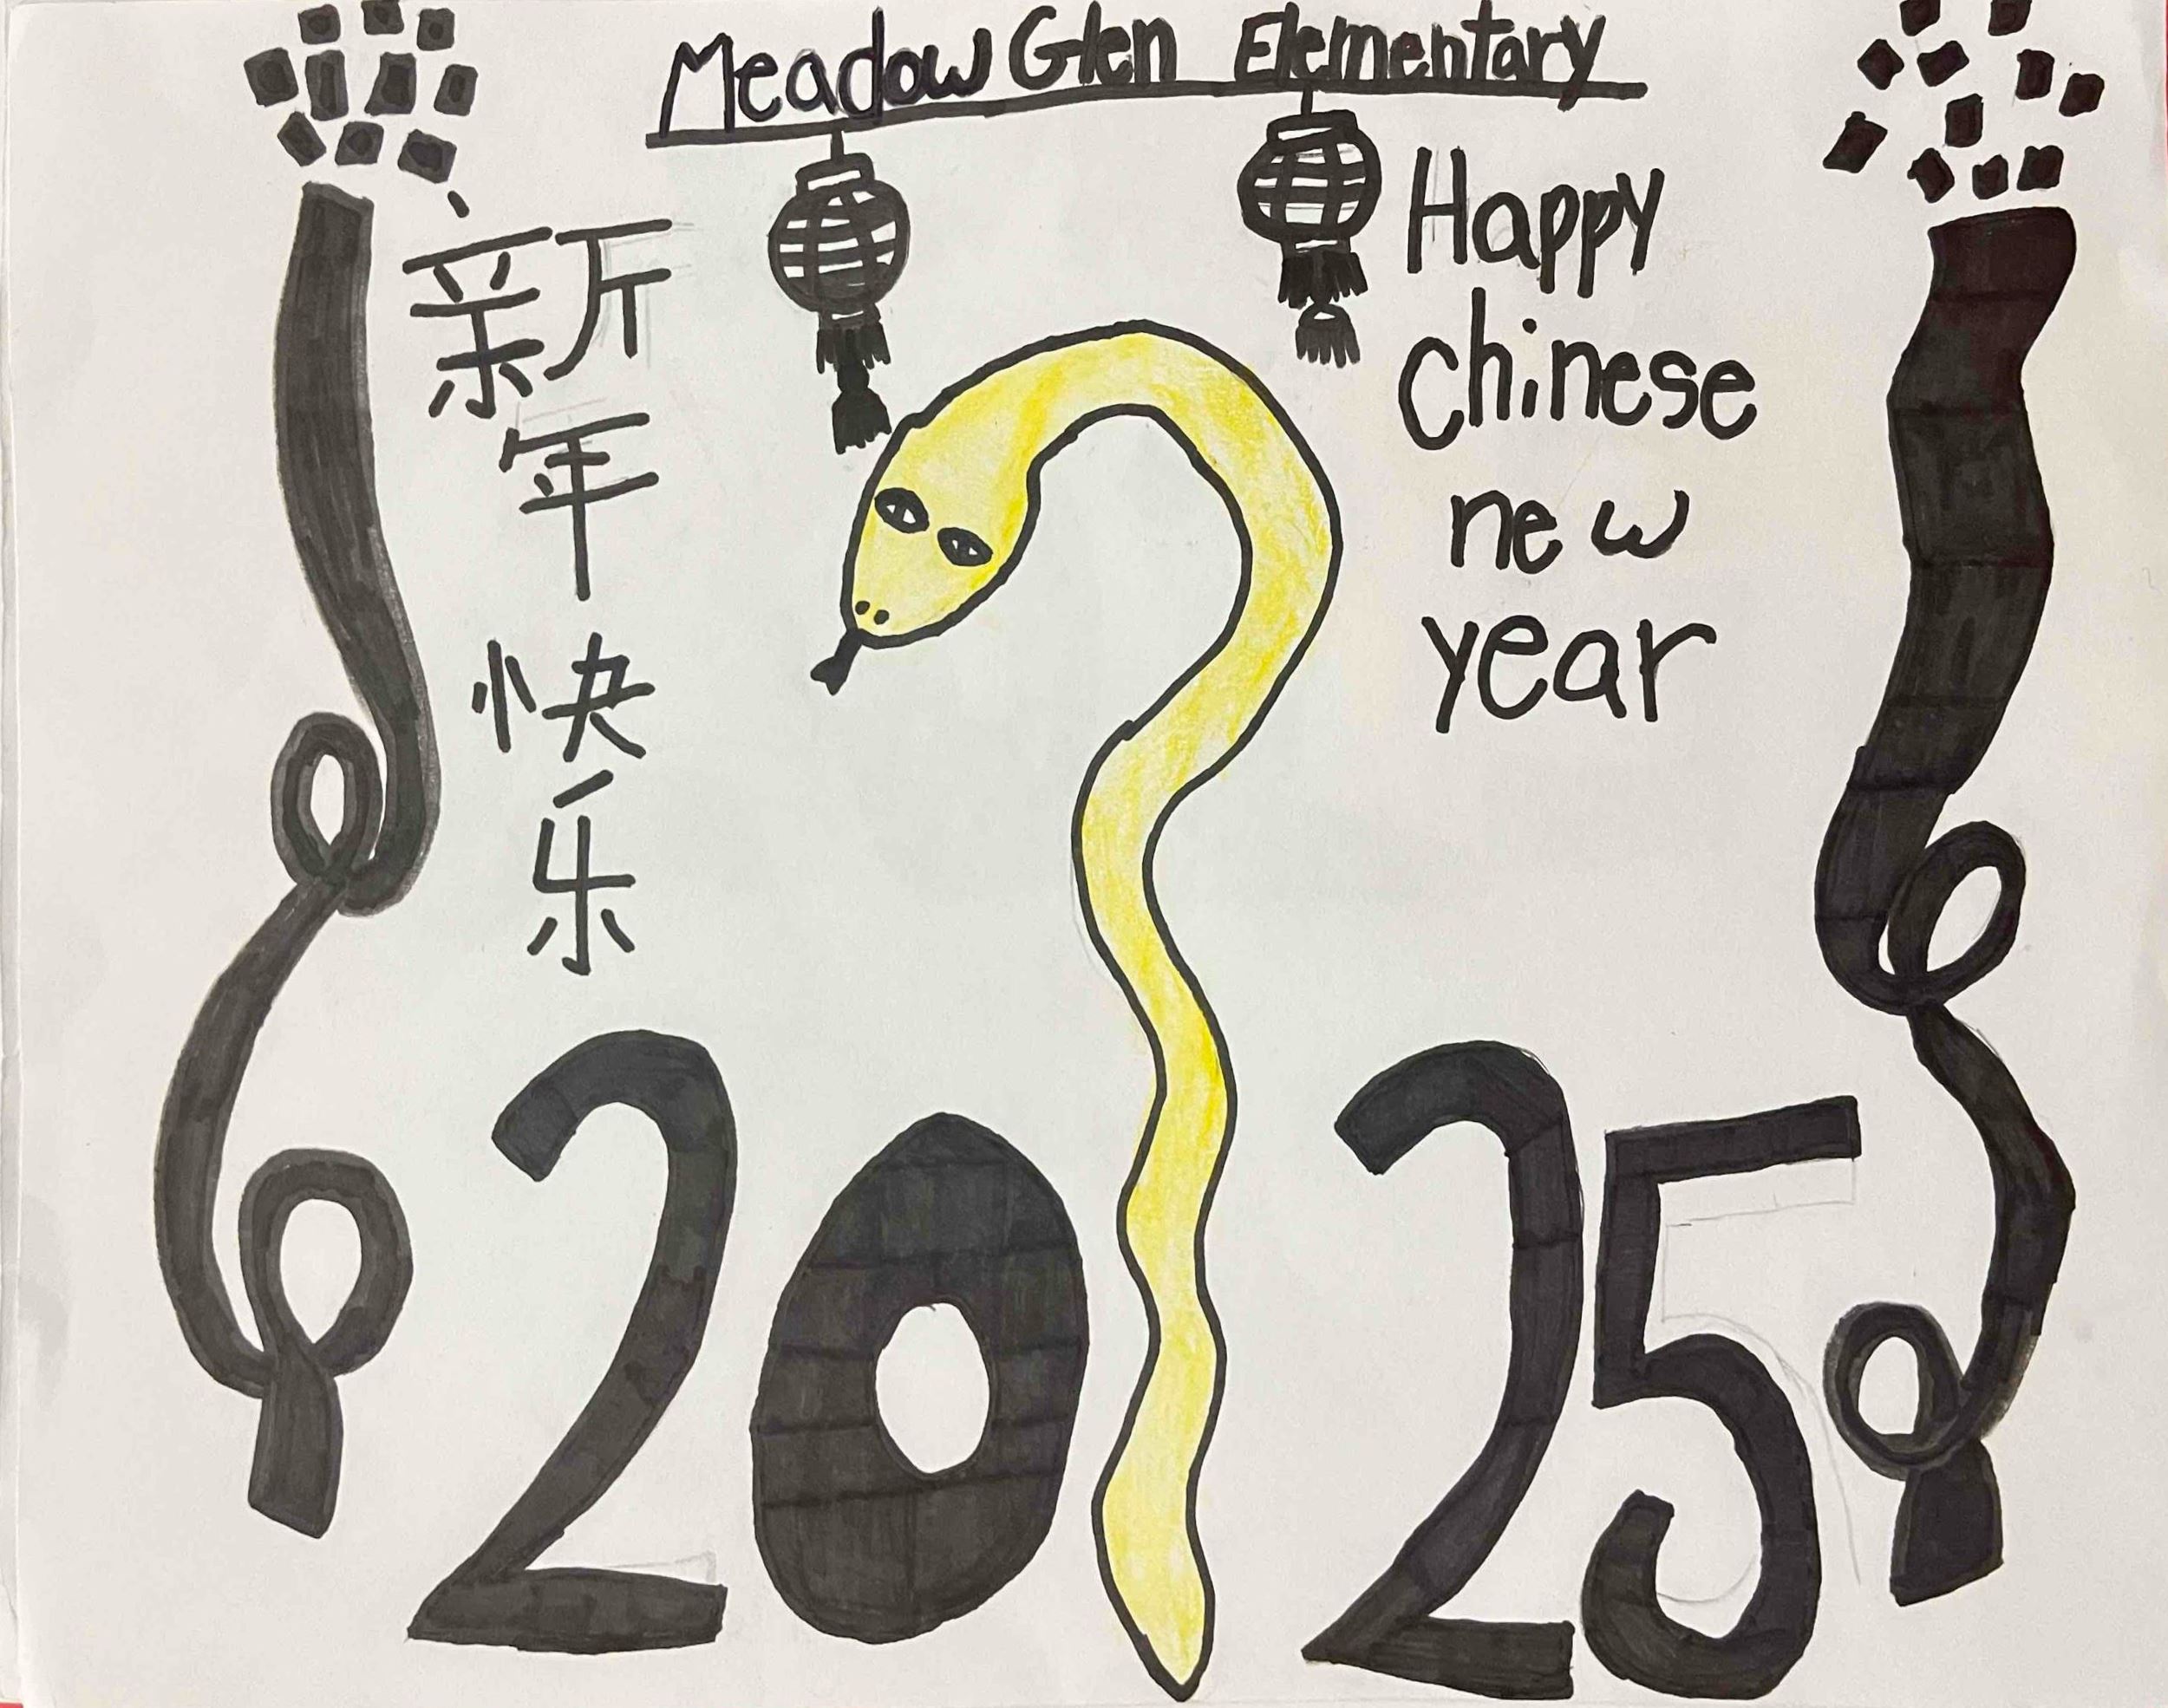 Meadow Glen Elementary
新
年
快
乐
Happy
chinese
new
year
2025